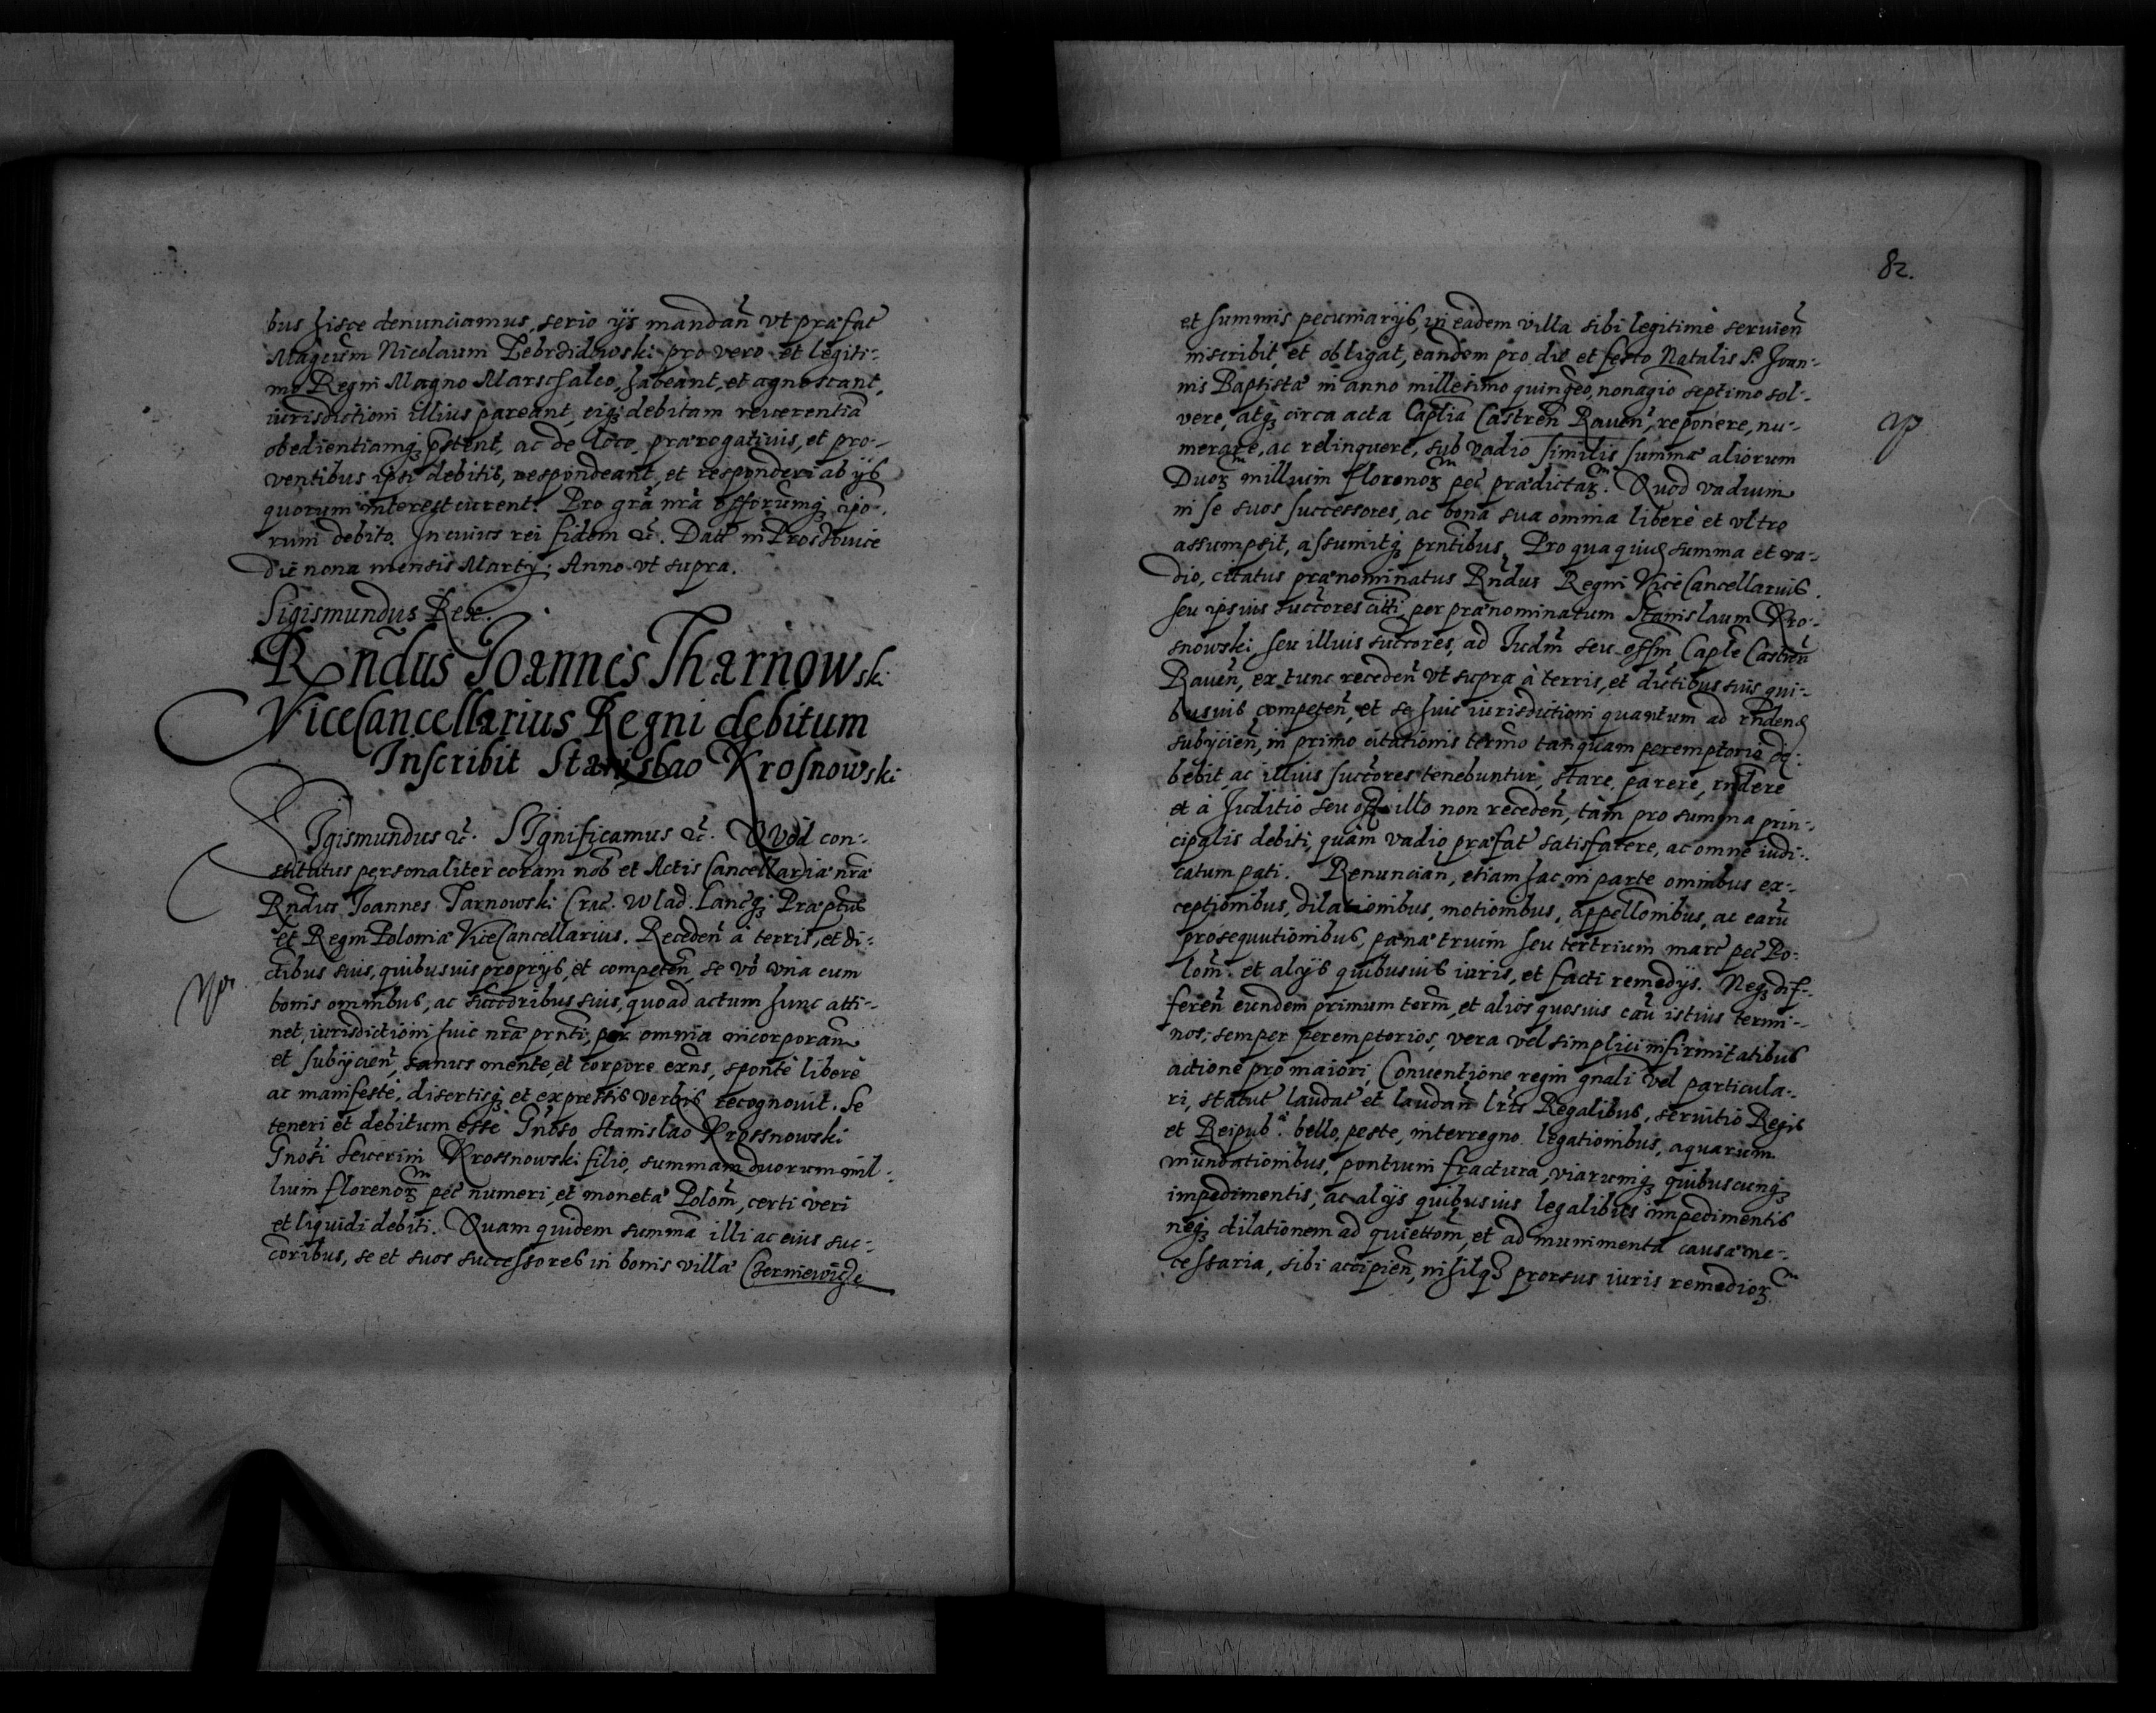 bus hisce denunciamus, serio ijs mandañ vt præfat
Magcum Nicolaum Zebrzidowski pro vero et legiti-
mo Regni Magno Marschalco, habeant, et agnoscant,
iurisdictioni illius pareant, eiq; debitam reuerentiã
obedientiamq; pstent, ac de loco, prærogatiuis, et pro-
ventibus ipsi debitis, respondeant, et responderi ab ijs
quorum interest curent. Pro grã nrã et offorumq; ipo-
rum debito. In cuius rei fidem &c. Datt in Proschouice
Die nona mensis Martij. Anno vt supra.
Sigismundus Rex.
Rndus Joannes Tharnowski
ViceCancellarius Regni debitum
Inscribit Stanislao Krosnowski
Sigismundus &c. SIgnificamus &c. Quod con-
stitutus personaliter coram nob et Actis Cancellariæ nræ
Rndus Joannes Tarnowski Crac. Wlad. Lancq; Præptus
et Regni Poloniæ ViceCancellarius. Recedeñ à terris, et di-
ctibus suis, quibusuis proprijs, et competeñ, se vó vna cum
bonis omnibus, ac succoribus suis, quo ad actum hunc atti-
net, iurisdictioni huic nræ prnti, per omnia incorporañ
et subijcieñ, sanus mente, et corpore exns, sponte libere
ac manifeste, disertisq; et expressis verbis recognouit. Se
teneri et debitum esse Gnoso Stanislao Krossnowski
Gnosi Seuerini Krossnowski filio, summam duorum mil-
lium florenorz pec numeri, et monetæ Polom, certi veri
et liquidi debiti. Quam quidem summã illi ac eius suc-
coribus, se et suos successores in bonis villæ Czerniewicze
82.
et summis pecuniarijs, in eadem villa sibi legitimè seruieñ
inscribit, et obligat, eandem pro die et festo Natalis S. Joan-
nis Baptistæ in anno millesimo quingeo, nonagio septimo sol-
vere, atq; circa acta Caplia Castreñ Raueñ, reponere, nu-
merare, ac relinquere, sub vadio similis summæ aliorum
Duorz millium florenorz pec prædictarz. Quod vadium
in se suos successores, ac bona sua omnia liberè et vltro
assumpsit, assumitq; prntibus. Pro qua quid summa et va-
dio, citatus prænominatus Rndus Regni ViceCancellarius
seu ipsius succores citti per prænominatum Stanislaum Kro-
snowski seu illius succores, ad Iudm seu offm Caple Castreñ
Raueñ, ex tunc recedeñ vt supra à terris, et dictibus suis qui-
busuis competeñ, et se huic iurisdictioni quantum ad rndend
subijcieñ, in primo citationis termo tanquam peremptorio de-
bebit, ac illius succores tenebuntur, stare, parere, rndere
et à Juditio seu offo illo non recedeñ, tàm pro summa prin-
cipalis debiti, quàm vadio præfat satisfacere, ac omne iudi-
catum pati. Renunciañ, etiam hac in parte omnibus ex-
ceptionibus, dilationibus, motionibus, appellonibus, ac earũ
prosequutionibus, pæna trium seu tertrium marc pec Po-
lom. et alijs quibusuis iuris, et facti remedijs. Neq; dif-
fereñ eundem primum term, et alios quosuis cau istius termi-
nos, semper peremptorios, vera vel simplici infirmitatibus
actione pro maiori, Conuentione regni gnali vel particula-
ri, statut laudat et laudañ lris Regalibus, seruitio Regis
et Reipub. bello, peste, interregno. legationibus, aquarum
inundationibus, pontium fractura, viarumq; quibuscunq;
impedimentis, ac alijs quibusuis legalibus impedimentis
neq; dilationem ad quiettom, et ad munimenta causæ ne-
cessaria, sibi accipieñ, nihilq; prorsus iuris remediorz